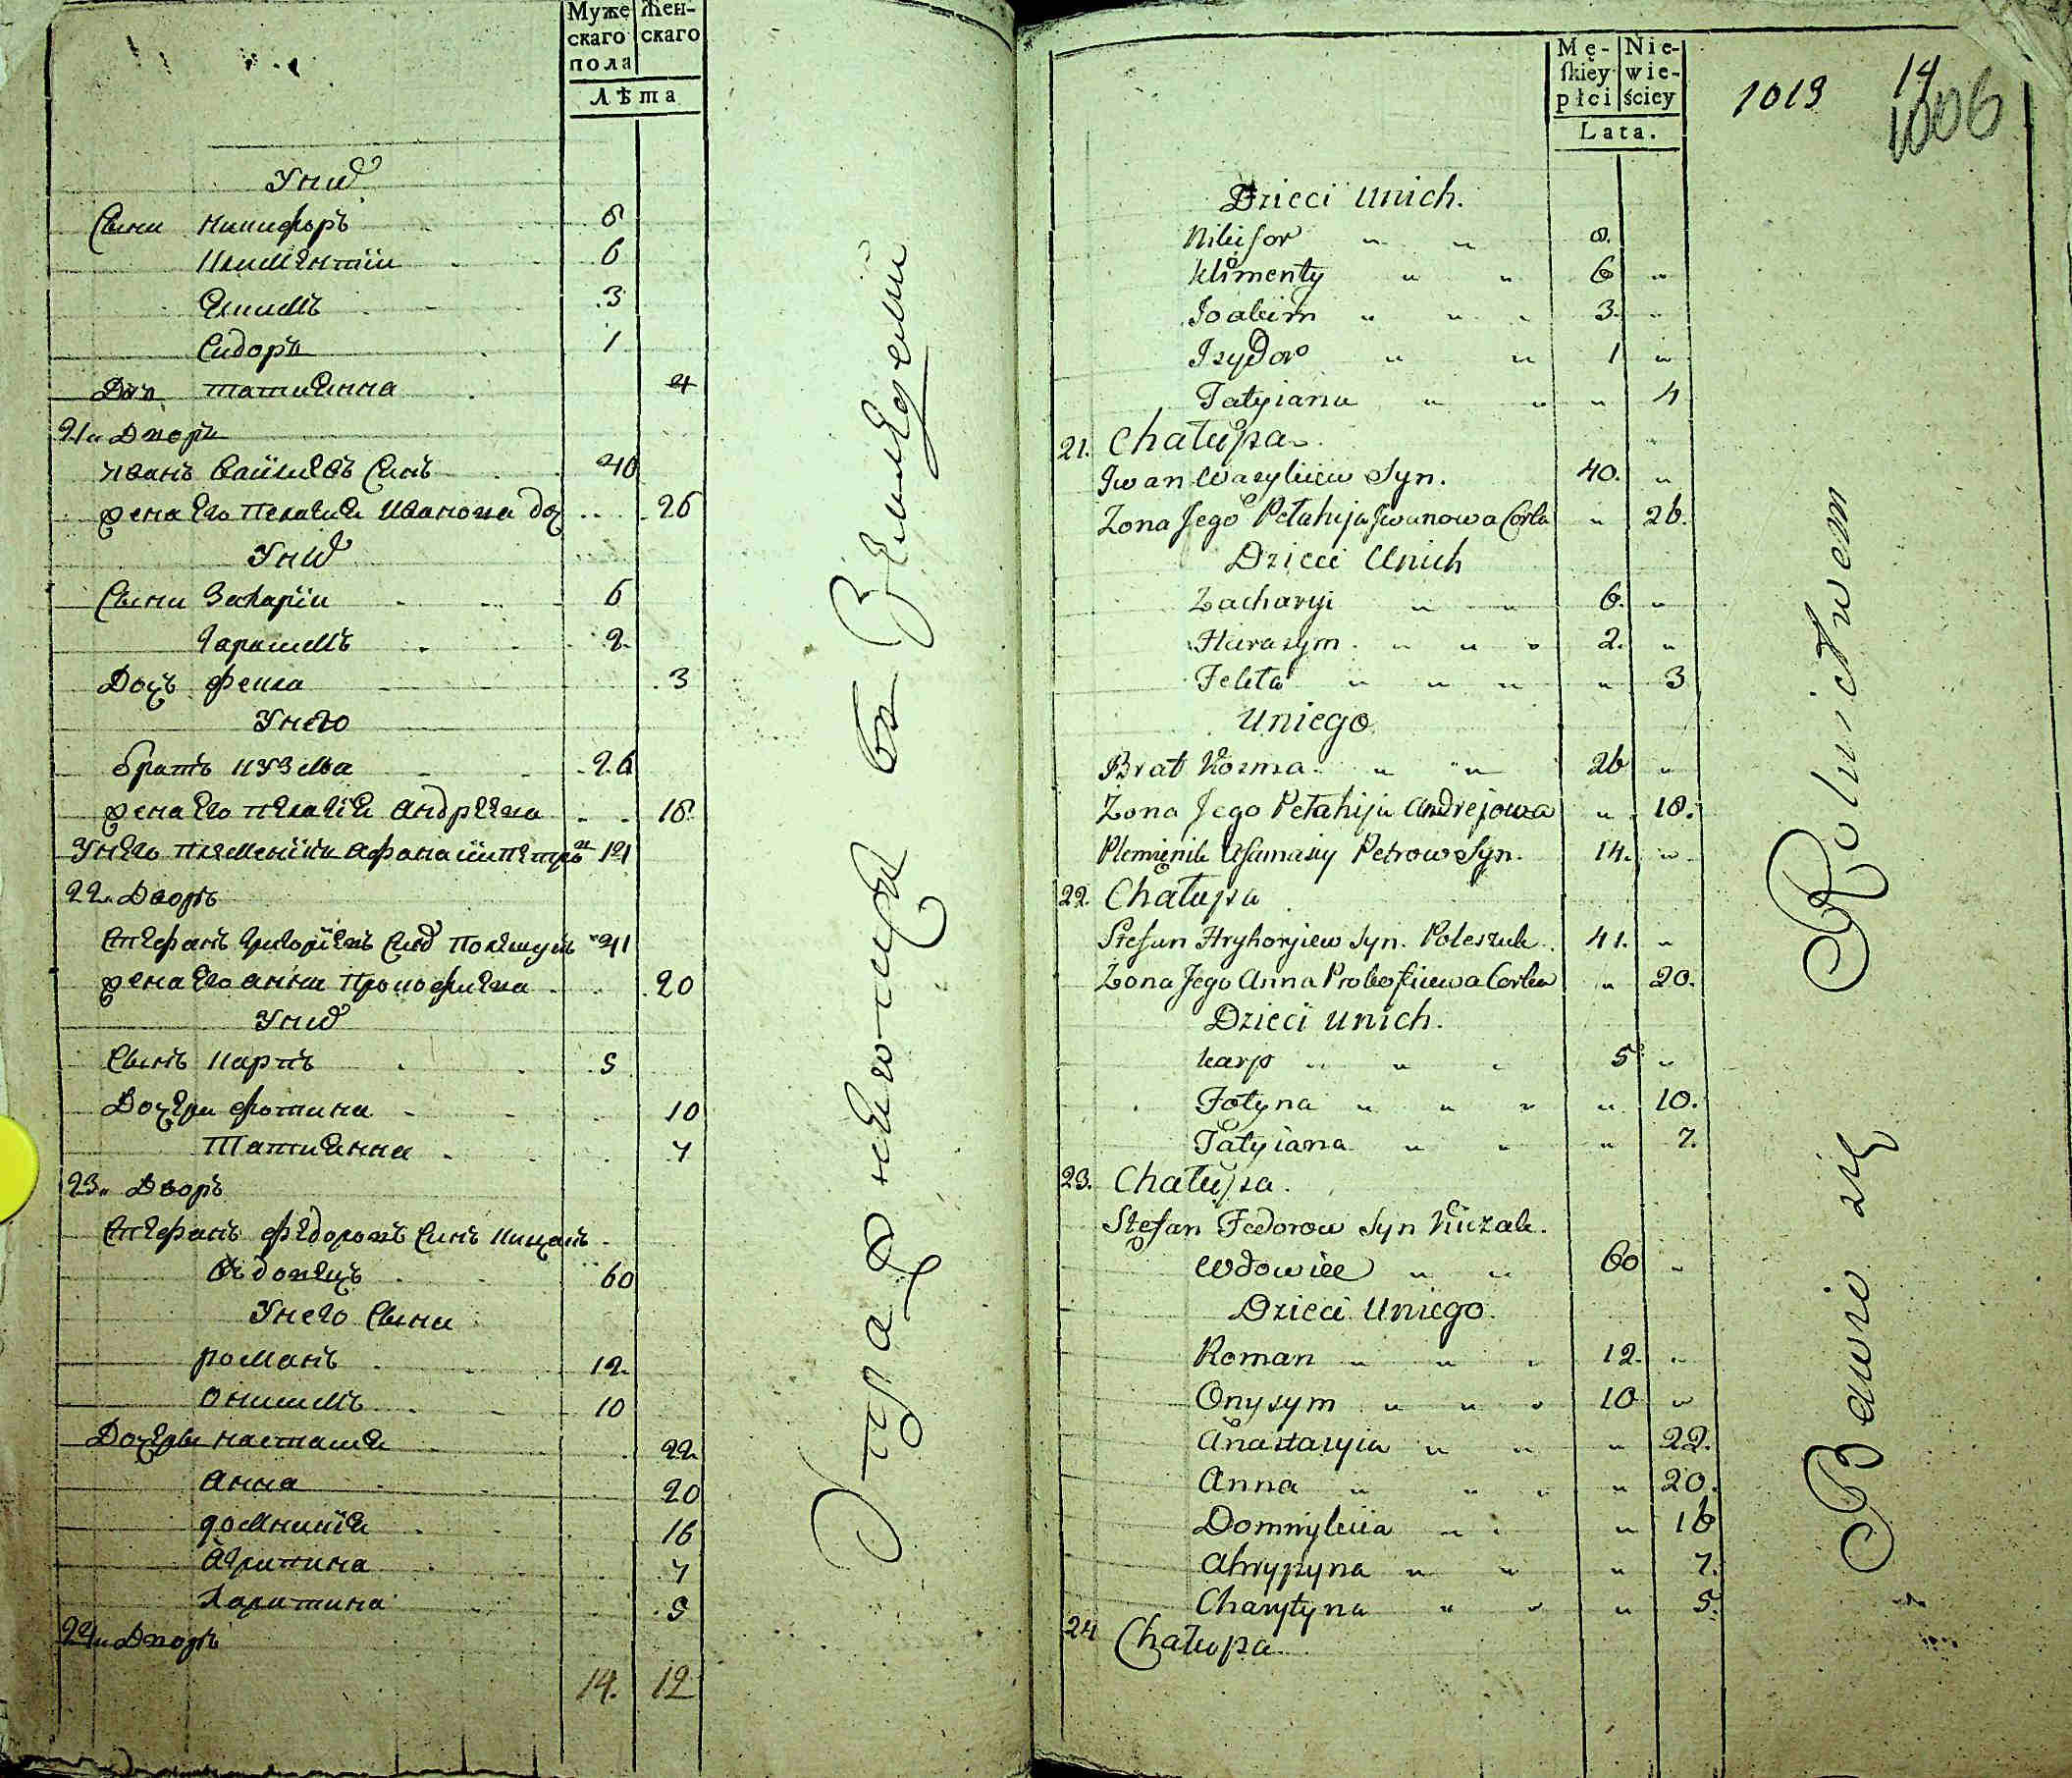 Муже
скаго
пола
Жен-
скаго
Лѣта
У них
Сыни Никифоръ 8
Климентии 6
Екимъ 3
Сидоръ 1
Доч. Татиянна 4
21" Дворъ
Иванъ Василевъ Синъ 40
жена Его Пелагия Иванова доч 26
У них
Сыни Захарïи 6
Гарасимъ 2
Дочь Фекла 3
У него
братъ Кузма 26
жена Его Пелагïя Андреева 18
У него племенïкъ Афанасïи Петровъ 14
22" Дворъ
Стефанъ Григорïевъ Син Полешукъ 41
жена Его Анна Прокофиева 20
У них
Сынъ Карпъ 5
Дочери Фотина 10
Татиянна 7
23" Дворъ
Стефанъ Федоровъ Синъ
Вдовецъ 60
У него Сыни
Романъ 12
Онисимъ 10
Дочеры Настасия 22
Анна 20
Домникïя 16
Агрипина 7
Харитина 5
24" Дворъ
14. 12
въ Земледелии
Mę-
ſkiéy
płci
Nie-
wie-
ściey
Lata.
1013
14
1006
Dzieci Unich.
Nikifor " " 8.
Klimenty " " 6 "
Joakim " " " 3. "
Jzydor " " 1 "
Tatyiana " " " 4
21. Chałupa
Jwan Wasylew Syn. 40. "
Zona Jego Pełahija Jwanowa Corka " 26.
Dzieci Unich
Zacharyi " " 6. "
Harasym " " " 2. "
Fekła " " " " 3
Uniego
Brat Kozma " " 26 "
Zona Jego Pełahija Andrejowa " 18.
Plemięnik Afanasiy Petrow Syn. 14. "
22. Chałupa
Stefan Hryhoryiew Syn. Poleszuk. 41. "
Zona Jego Anna Prokofiiewa Corka " 20.
Dzieci Unich.
Karp " " " 5 "
Fotyna " " " " 10.
Tatyiana " " " 7.
23. Chałupa.
Stefan Fedorow Syn
Wdowiec " " 60 "
Dzieci Uniego.
Roman " " " 12. "
Onysym " " " 10 "
Anastazyia " " " 22.
Anna " " " " 20.
Domnykiia " " " 16
Ahrypyna " " " 7.
Charytyna " " " 5.
24 Chałupa
Bawio się Rolnictwem